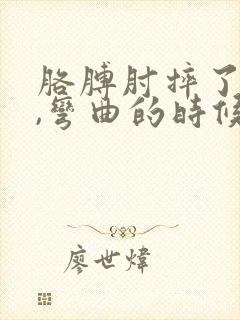 胳膊肘摔了
,彎曲的時候
廖世煒